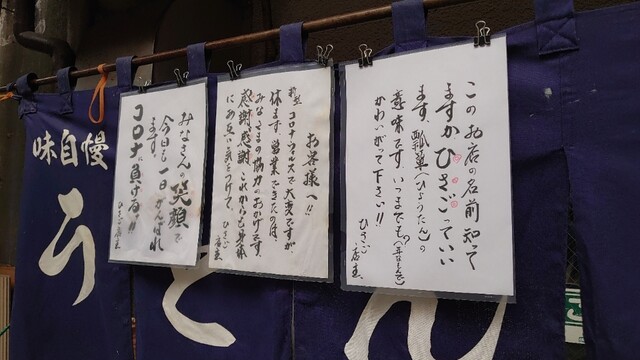 このお店の名前知って
ますかひさごてい
ます、瓢箪(ひょうたん)の
意味です。いつまでも
かわいがって下さい!!
ひさご
店主
お客様へ!!
新型コロナウイルスで大変ですが
休まず営業できたのは、
みなさまの協力のおかげです。
感謝感謝これからもお身体
にお気をつけて、
ひさご
店主
みなさんの笑顔で
今日も一日がんばれ
ます。
コロナに負けるな!!
ひさご店主
味自慢
うどん